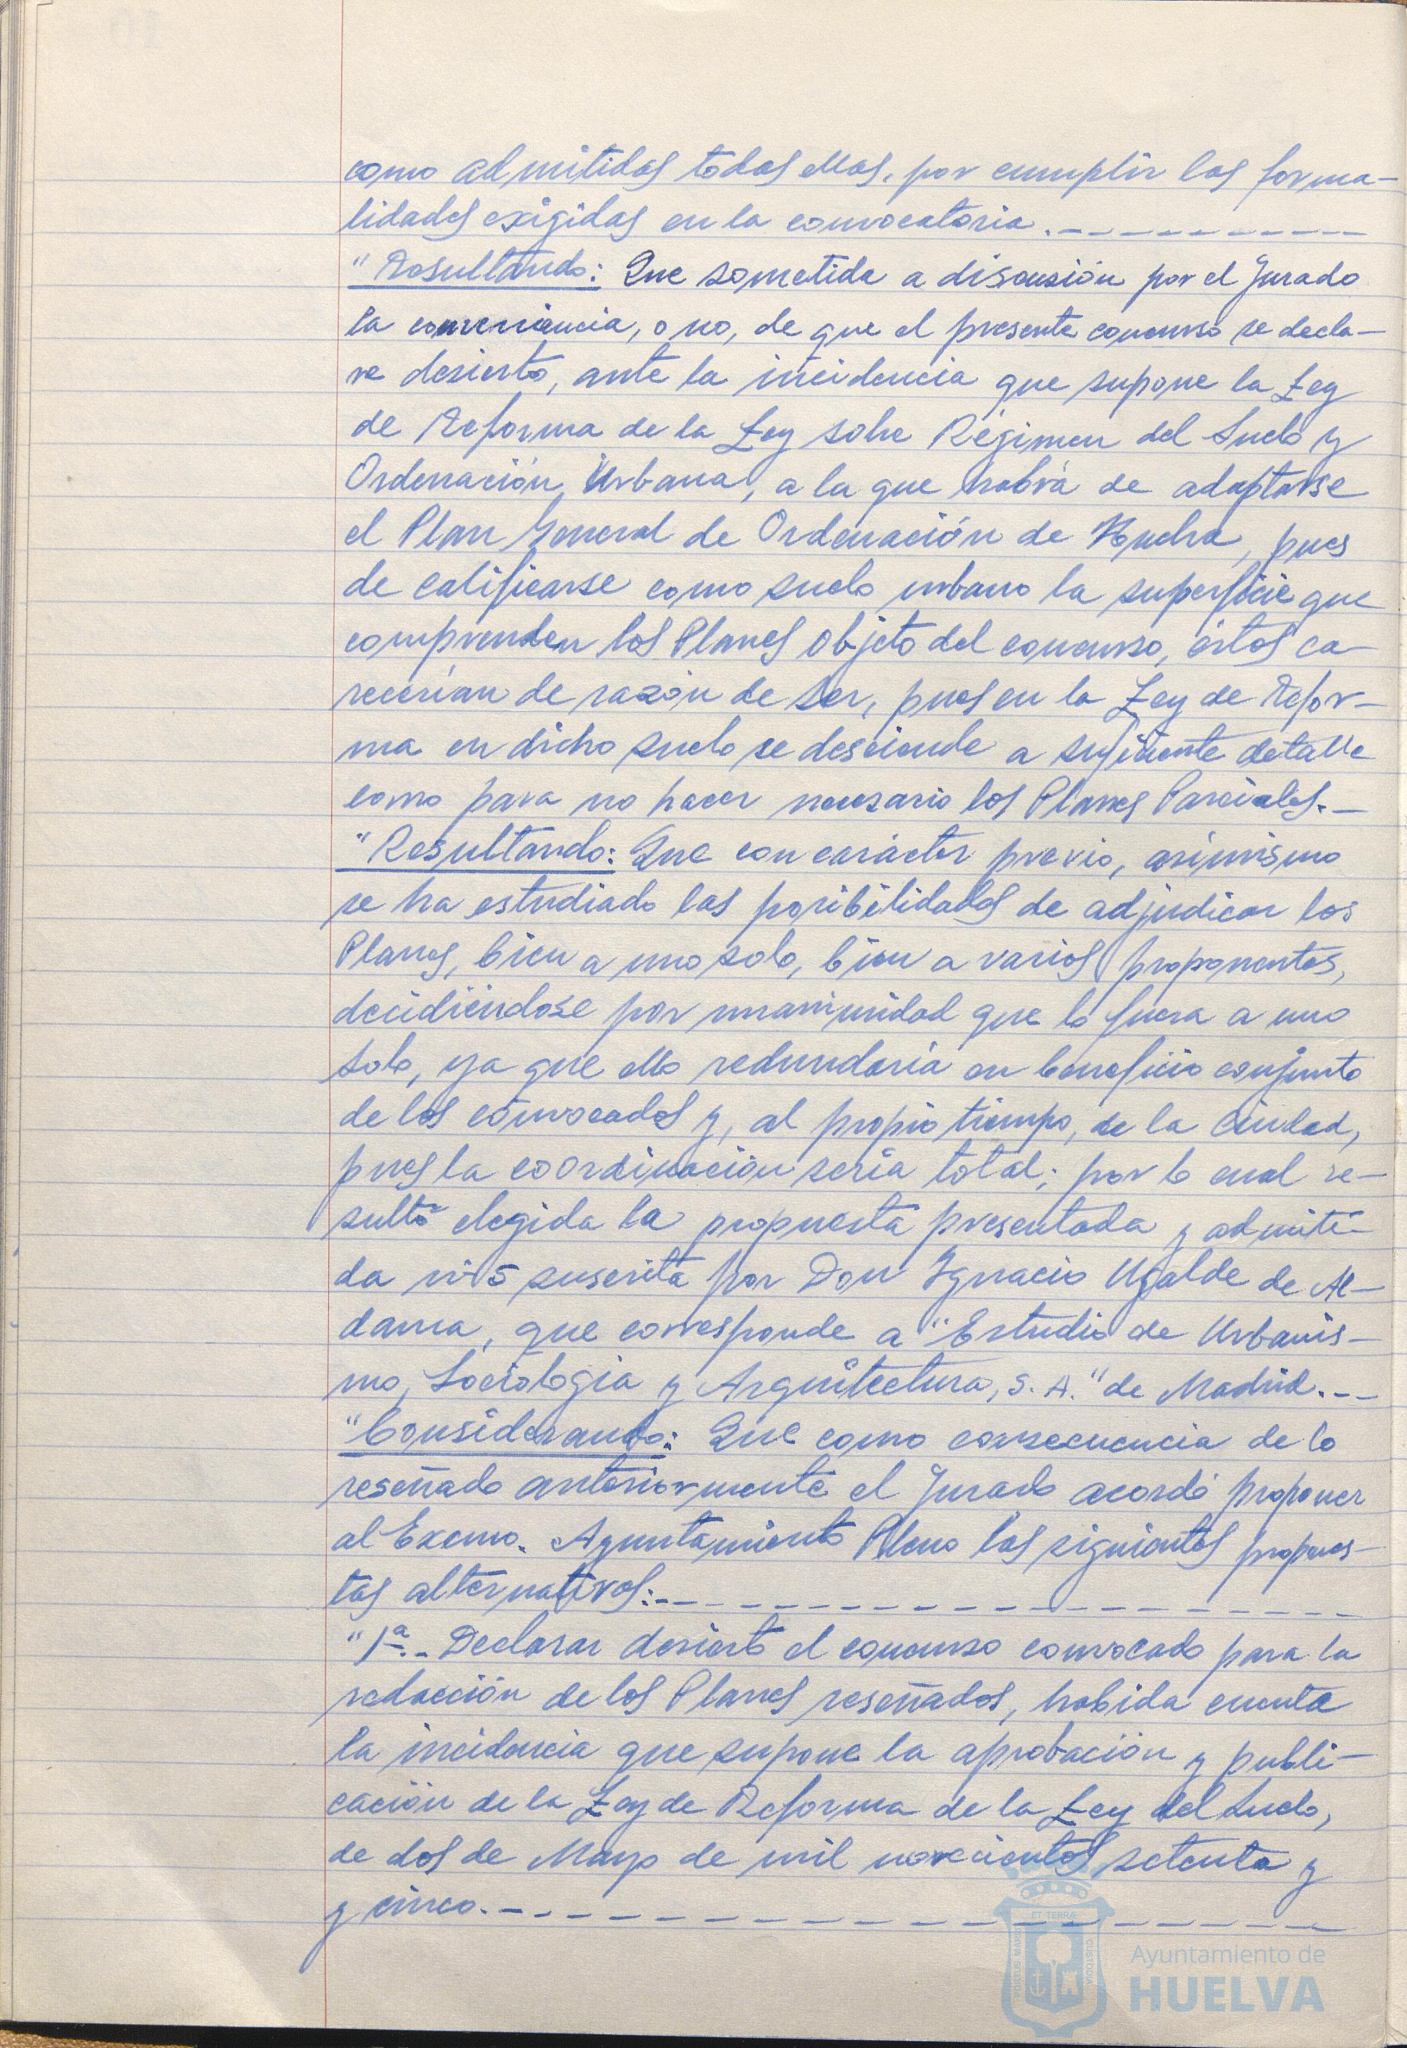 como admitidas todas ellas, por cumplir las forma-
lidades exigidas en la convocatoria.
"Resultando: Que sometida a discusión por el Jurado
la conveniencia, o no, de que el presente concurso se decla-
re desierto, ante la incidencia que supone la Ley
de Reforma de la Ley sobre Régimen del Suelo y
Ordenación Urbana, a la que habrá de adaptarse
el Plan General de Ordenación de Huelva, pues
de calificarse como suelo urbano la superficie que
comprenden los Planes objeto del concurso, éstos ca-
recerían de razón de ser, pues en la Ley de Refor-
ma en dicho suelo se desciende a suficiente detalle
como para no hacer necesario los Planes Parciales.-
"Resultando: Que con carácter previo, asimismo
se ha estudiado las posibilidades de adjudicar los
Planes, bien a uno solo, bien a varios proponentes,
decidiéndose por unanimidad que lo fuera a uno
solo, ya que ello redundaría en beneficio conjunto
de los convocados y, al propio tiempo, de la Ciudad,
pues la coordinación sería total; por lo cual re-
sultó elegida la propuesta presentada y admiti-
da nº 5 suscrita por Don Ignacio Ugalde de Al-
dama, que corresponde a "Estudio de Urbanis-
mo, Sociología y Arquitectura, S.A." de Madrid.--
"Considerando: Que como consecuencia de lo
reseñado anteriormente el Jurado acordó proponer
al Excmo. Ayuntamiento Pleno las siguientes propues-
tas alternativas:-
"1ª.- Declarar desierto el concurso convocado para la
redacción de los Planes reseñados, habida cuenta
la incidencia que supone la aprobación y publi-
cación de la Ley de Reforma de la Ley del Suelo,
de dos de Mayo de mil novecientos setenta y
y cinco.-
ET TERRÆ
PORTUS MARIS
CUSTODIA
Ayuntamiento de
HUELVA